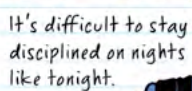 It's difficult to stay
disciplined on nights
like tonight.